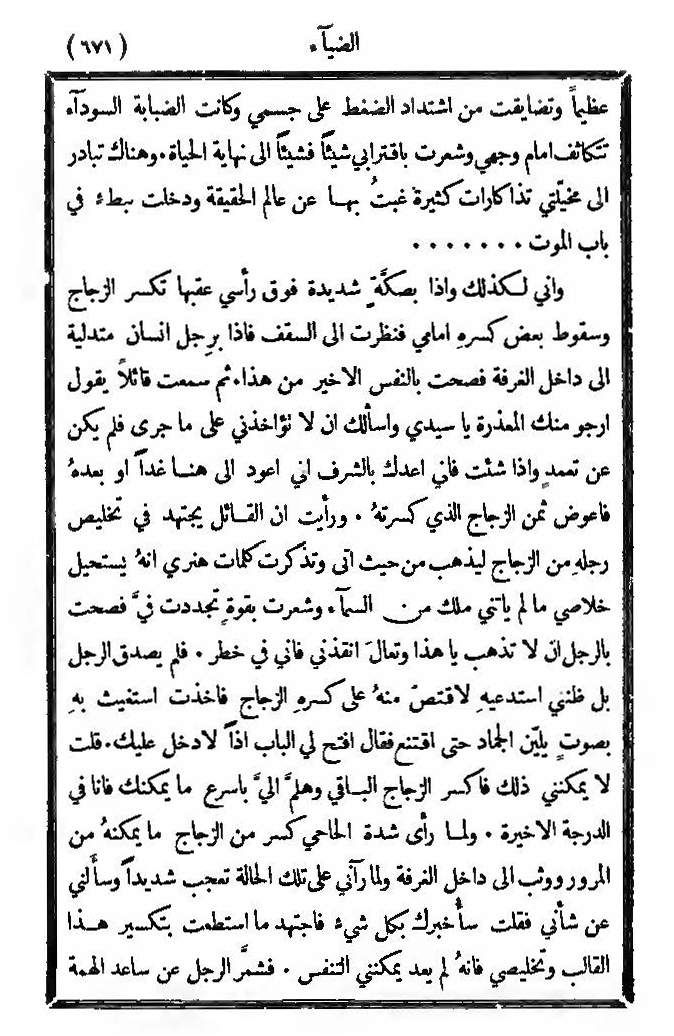 الضيآء
(٦٧١)
عظيماً وتضايقت من اشتداد الضغط على جسمي وكانت الضبابة السودآء
تتكاثف امام وجهي وشعرت باقترابي شيئاً فشيئاً الى نهاية الحياة. وهناك تبادر
الى مخيّلتي تذاكارات كثيرة غبتُ بها عن عالم الحقيقة ودخلت ببطء في
باب الموت . . . . . . .
واني لكذلك واذا بصكَّةٍ شديدة فوق رأسي عقبها تكسر الزجاج
وسقوط بعض كسرهِ امامي فنظرت الى السقف فاذا برِجل انسان متدلية
الى داخل الغرفة فصحت بالنفس الاخير من هذا. ثم سمعت قائلاً يقول
ارجو منك المعذرة يا سيدي واسألك ان لا تؤاخذني على ما جرى فلم يكن
عن تعمدٍ واذا شئت فاني اعدك بالشرف اني اعود الى هنا غداً او بعدهُ
فاعوض ثمن الزجاج الذي كسرتهُ . ورأيت ان القائل يجتهد في تخليص
رجلهِ من الزجاج ليذهب من حيث اتى وتذكرت كلمات هنري انهُ يستحيل
خلاصي ما لم ياتني ملك من السمآء وشعرت بقوةٍ تجددت فيَّ فصحت
بالرجل ان لا تذهب يا هذا وتعالَ انقذني فاني في خطر . فلم يصدق الرجل
بل ظنني استدعيهِ لاقتصّ منهُ على كسرهِ الزجاج فاخذت استغيث بهِ
بصوتٍ يليّن الجماد حتى اقتنع فقال افتح لي الباب اذاً لادخل عليك. قلت
لا يمكنني ذلك فاكسر الزجاج الباقي وهلمَّ اليَّ باسرع ما يمكنك فانا في
الدرجة الاخيرة . ولما رأى شدة الحاحي كسر من الزجاج ما يمكنهُ من
المرور ووثب الى داخل الغرفة ولما رآني على تلك الحالة تعجب شديداً وسألني
عن شأني فقلت سأُخبرك بكل شيء فاجتهد ما استطعت بتكسير هذا
القالب وتخليصي فانهُ لم يعد يمكنني التنفس . فشمَّر الرجل عن ساعد الهمة